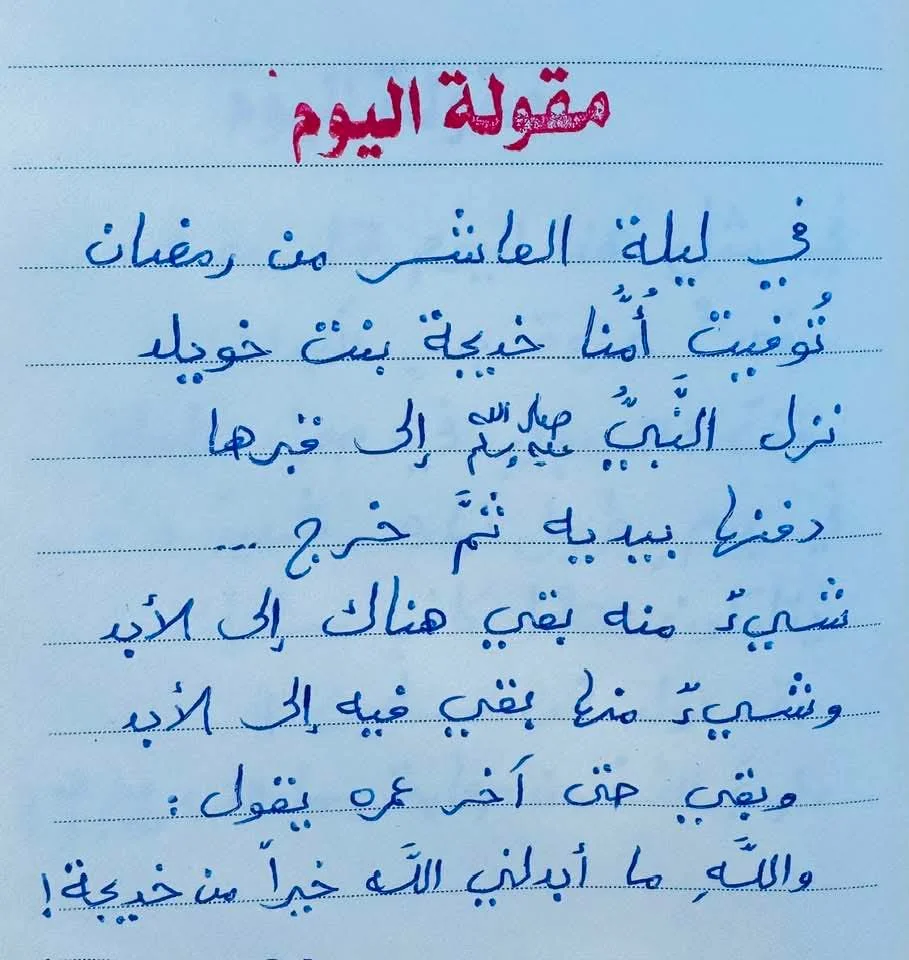 مقولة اليوم
في ليلة العاشر من رمضان
تُوفيت أُمُّنا خديجة بنت خويلد
نزل النَّبيُّ صلى الله عليه وسلم إلى قبرها
دفنها بيديه ثمَّ خرج ...
شيءٌ منه بقي هناك إلى الأبد
وشيءٌ منها بقي فيه إلى الأبد
وبقي حتى آخر عمره يقول :
واللَّهِ ما أبدلني اللَّه خيراً من خديجة !